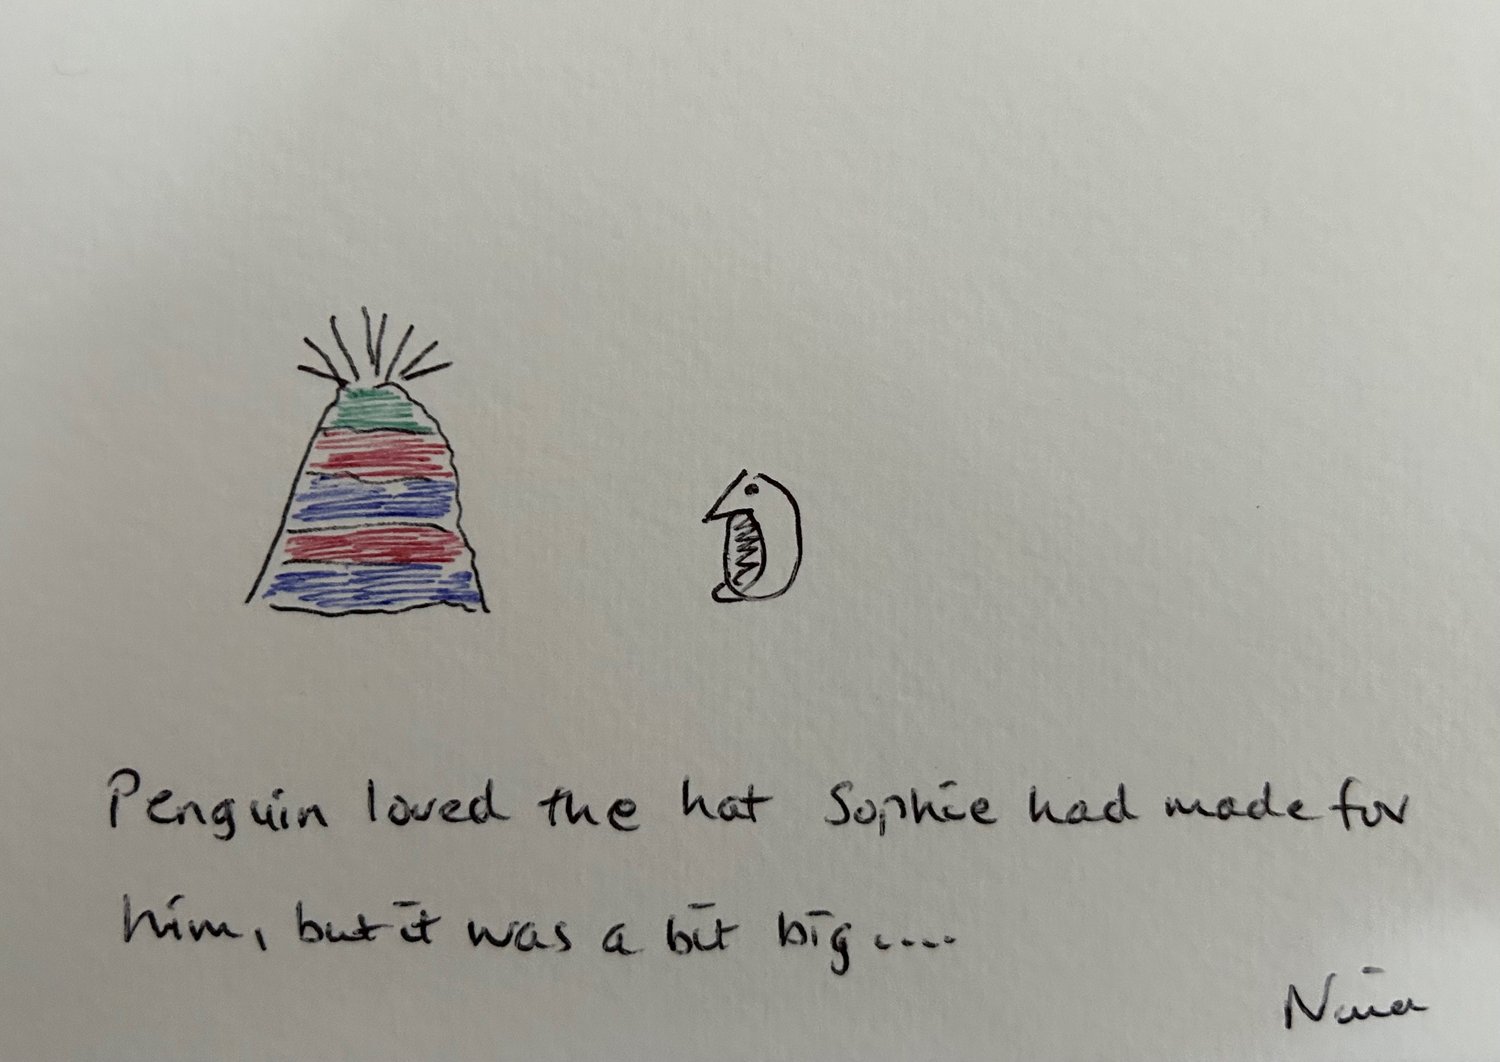 Penguin loved the hat Sophie had made for
him, but it was a bit big....
Nina